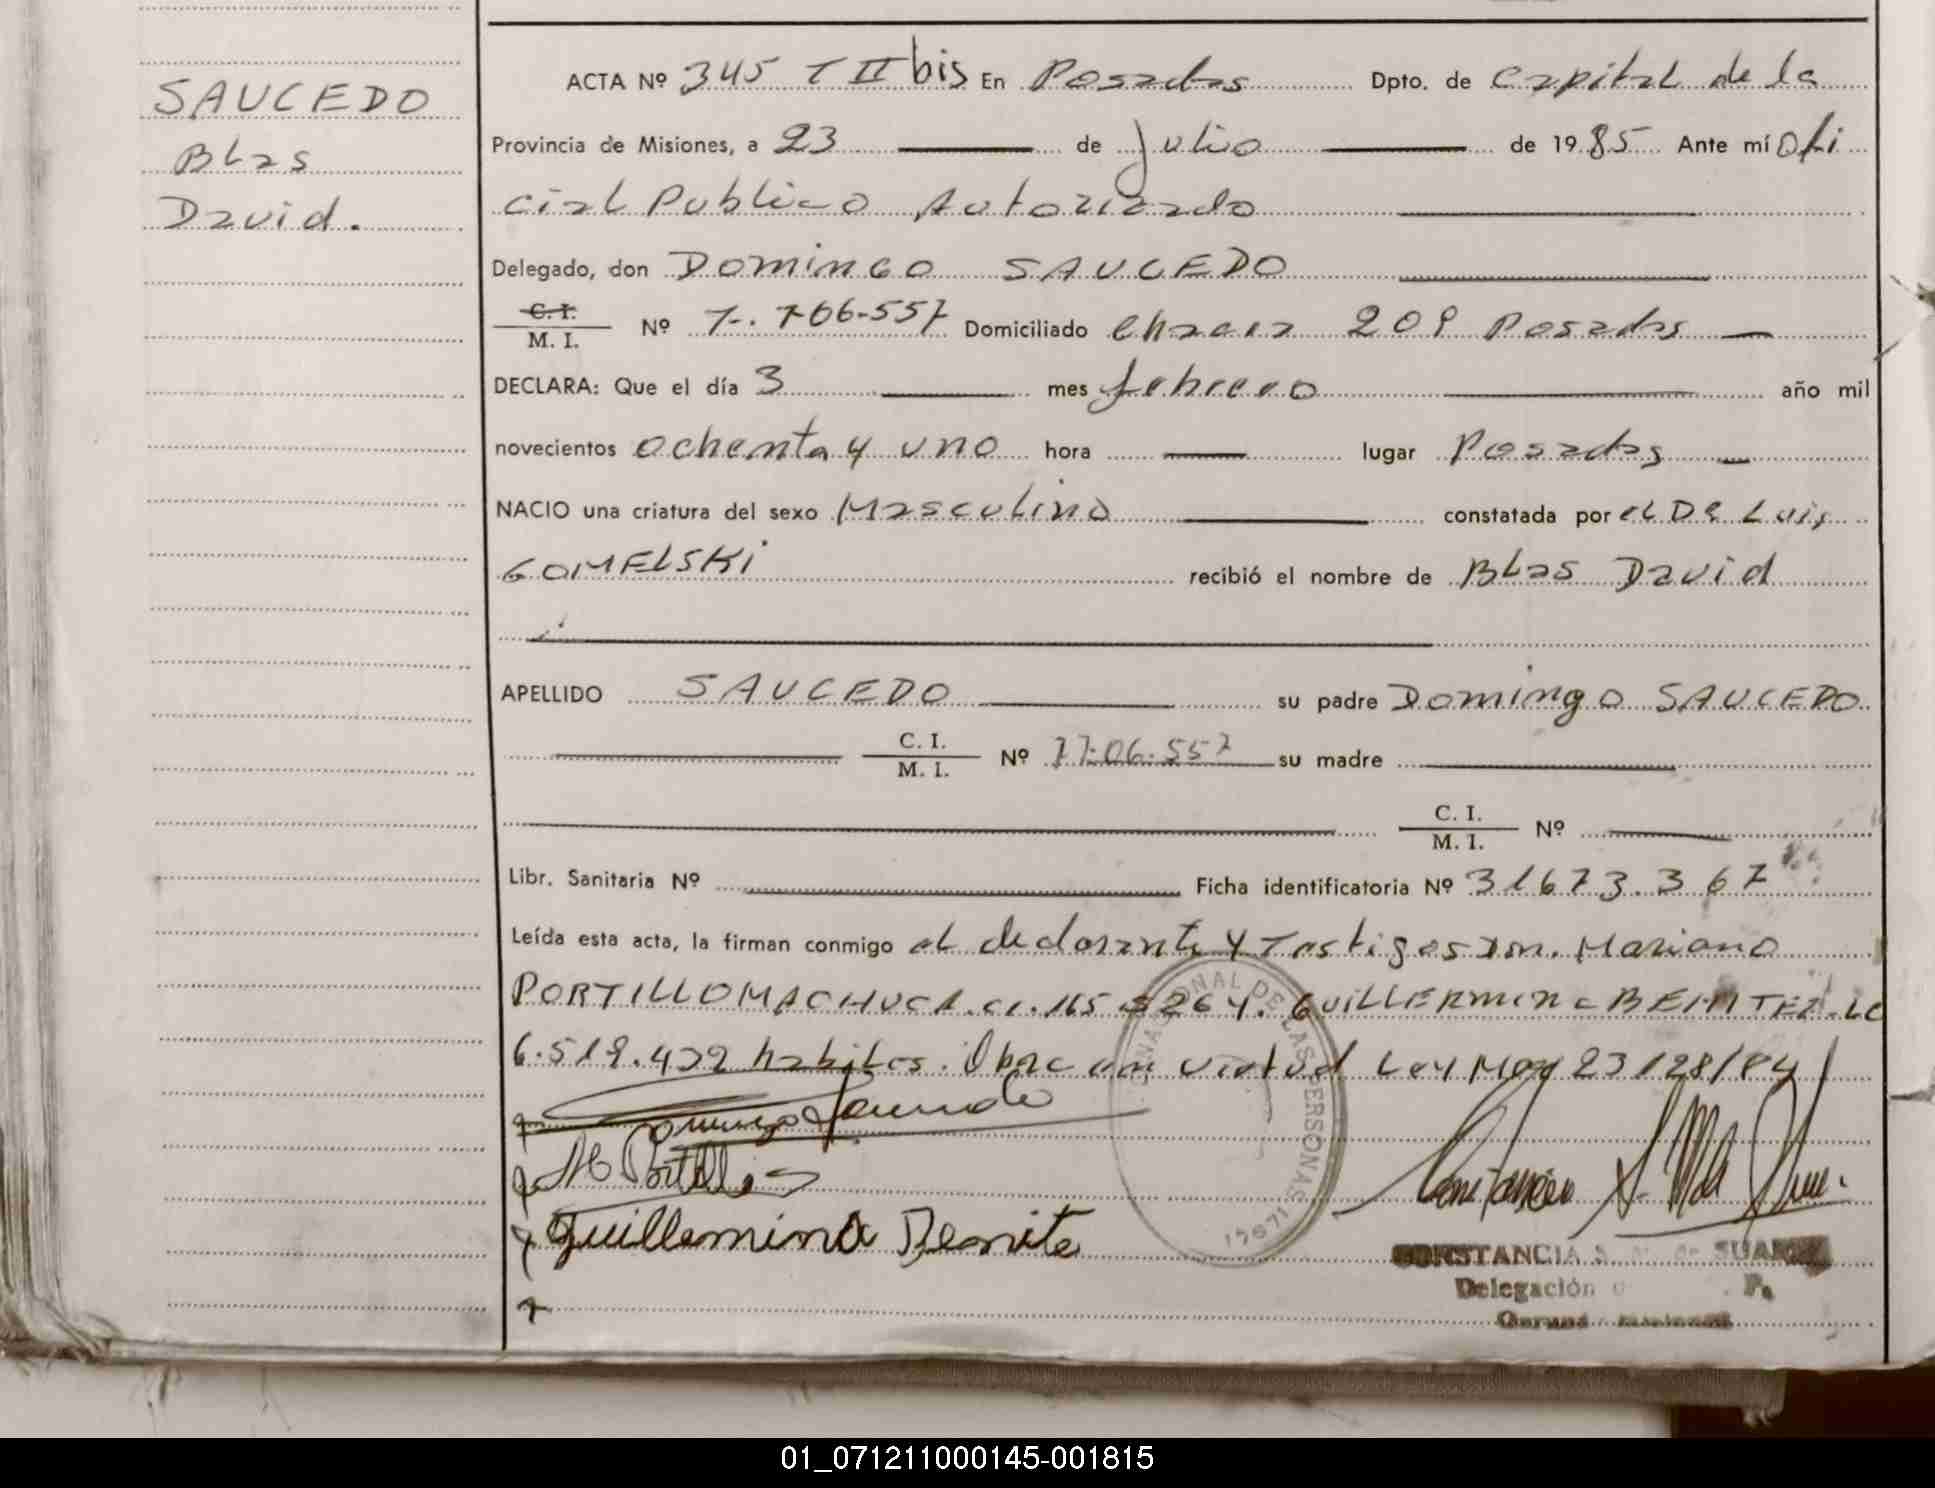 SAUCEDO
Blas
David.
ACTA Nº 345 T II bis En Posadas Dpto. de Capital de la
Provincia de Misiones, a 23 de julio de 1985 Ante mí ofi
cial Publico Autorizado
Delegado, don DOMINGO SAUCEDO
C. I.
M. I. Nº 7.706-557 Domiciliado Chacra 209 Posadas
DECLARA: Que el día 3 mes febrero año mil
novecientos ochenta y uno hora lugar Posadas
NACIO una criatura del sexo Masculino constatada por el DR Luis
GOMELSKI recibió el nombre de Blas David
APELLIDO SAUCEDO su padre Domingo SAUCEDO
C. I.
M. I. Nº 77.06.557 su madre
C. I.
M. I. Nº
Libr. Sanitaria Nº Ficha identificatoria Nº 31673.367
Leída esta acta, la firman conmigo el declarante y Testigos Dn. Mariano
PORTILLO MACHUCA. CI. 165 5264. GUILLERMINA BENITEZ. LC
6.519.432 habiles. Obrc en virtud Ley Mag 23128/84
Domingo Saucedo
M Portillo
Guillermina Benite
NACIONAL DE LAS PERSONAS
CONSTANCIA S. SUAREZ
Delegación
01_071211000145-001815